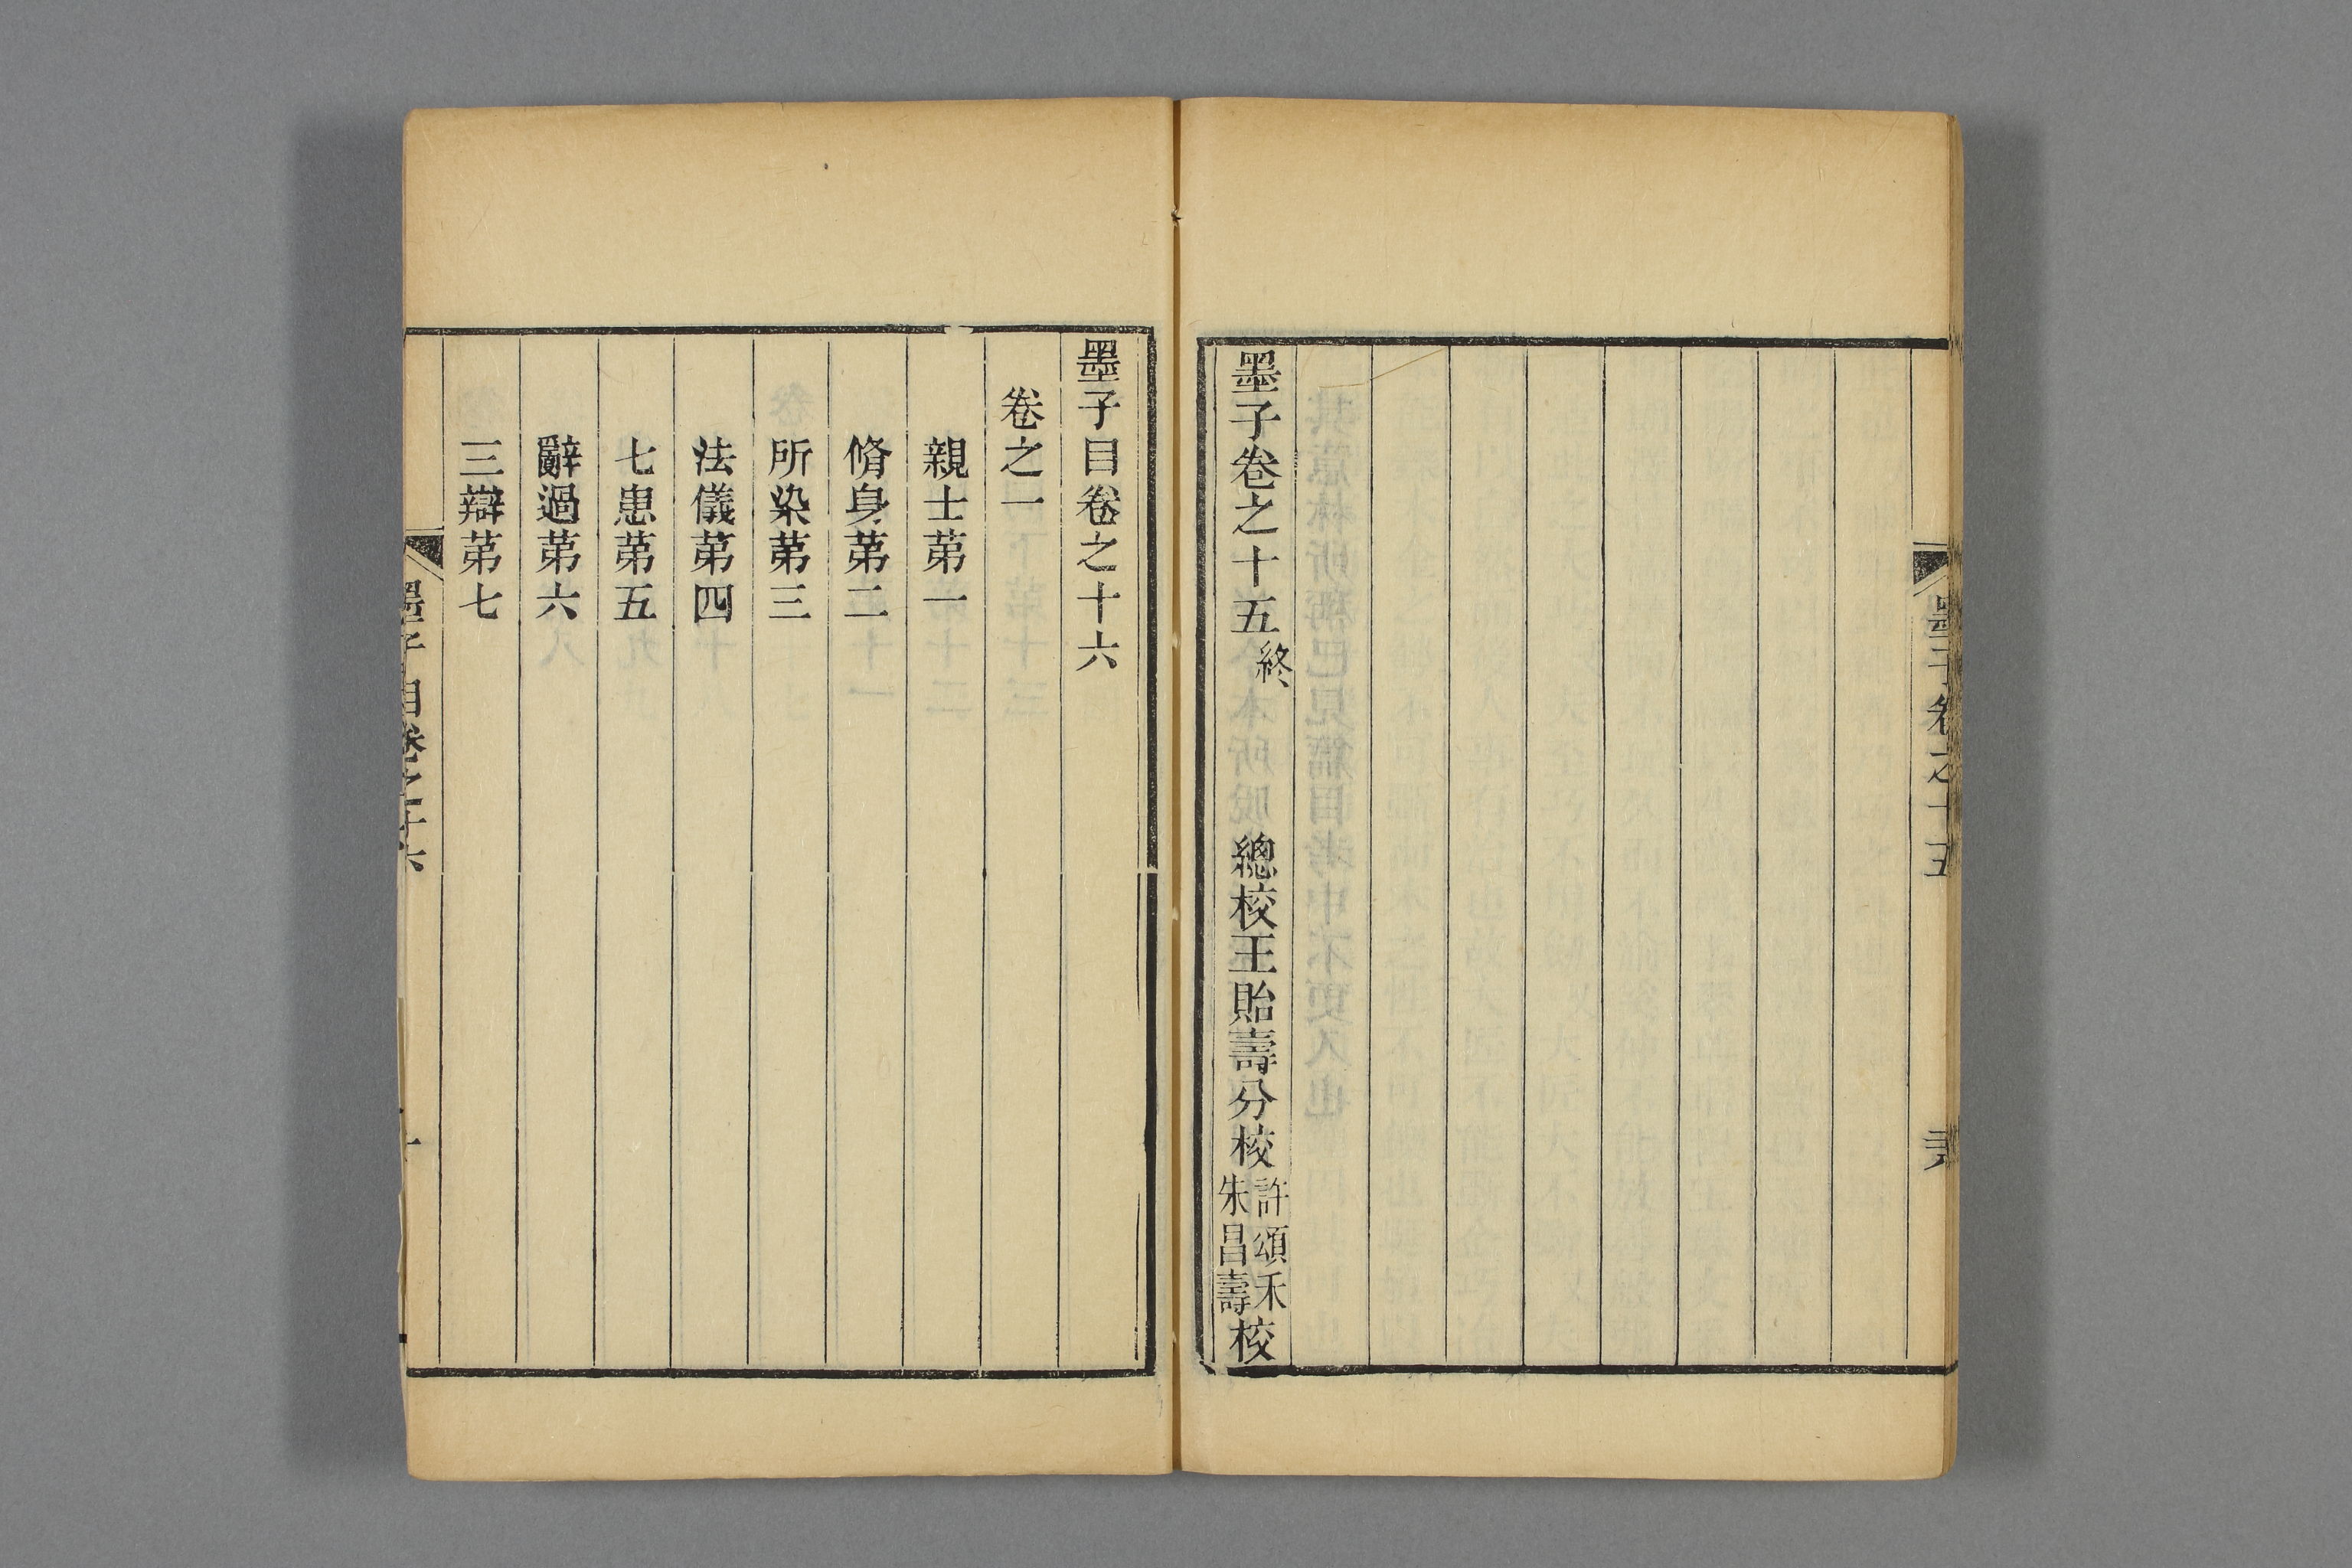 墨子卷之十五
墨子卷之十五終　總校王貽壽分校許頌禾朱昌壽校
墨子目卷之十六
卷之一
親士苐一
脩身苐二
所染苐三
法儀苐四
七患苐五
辭過苐六
三辯苐七
墨子目卷之十六
一